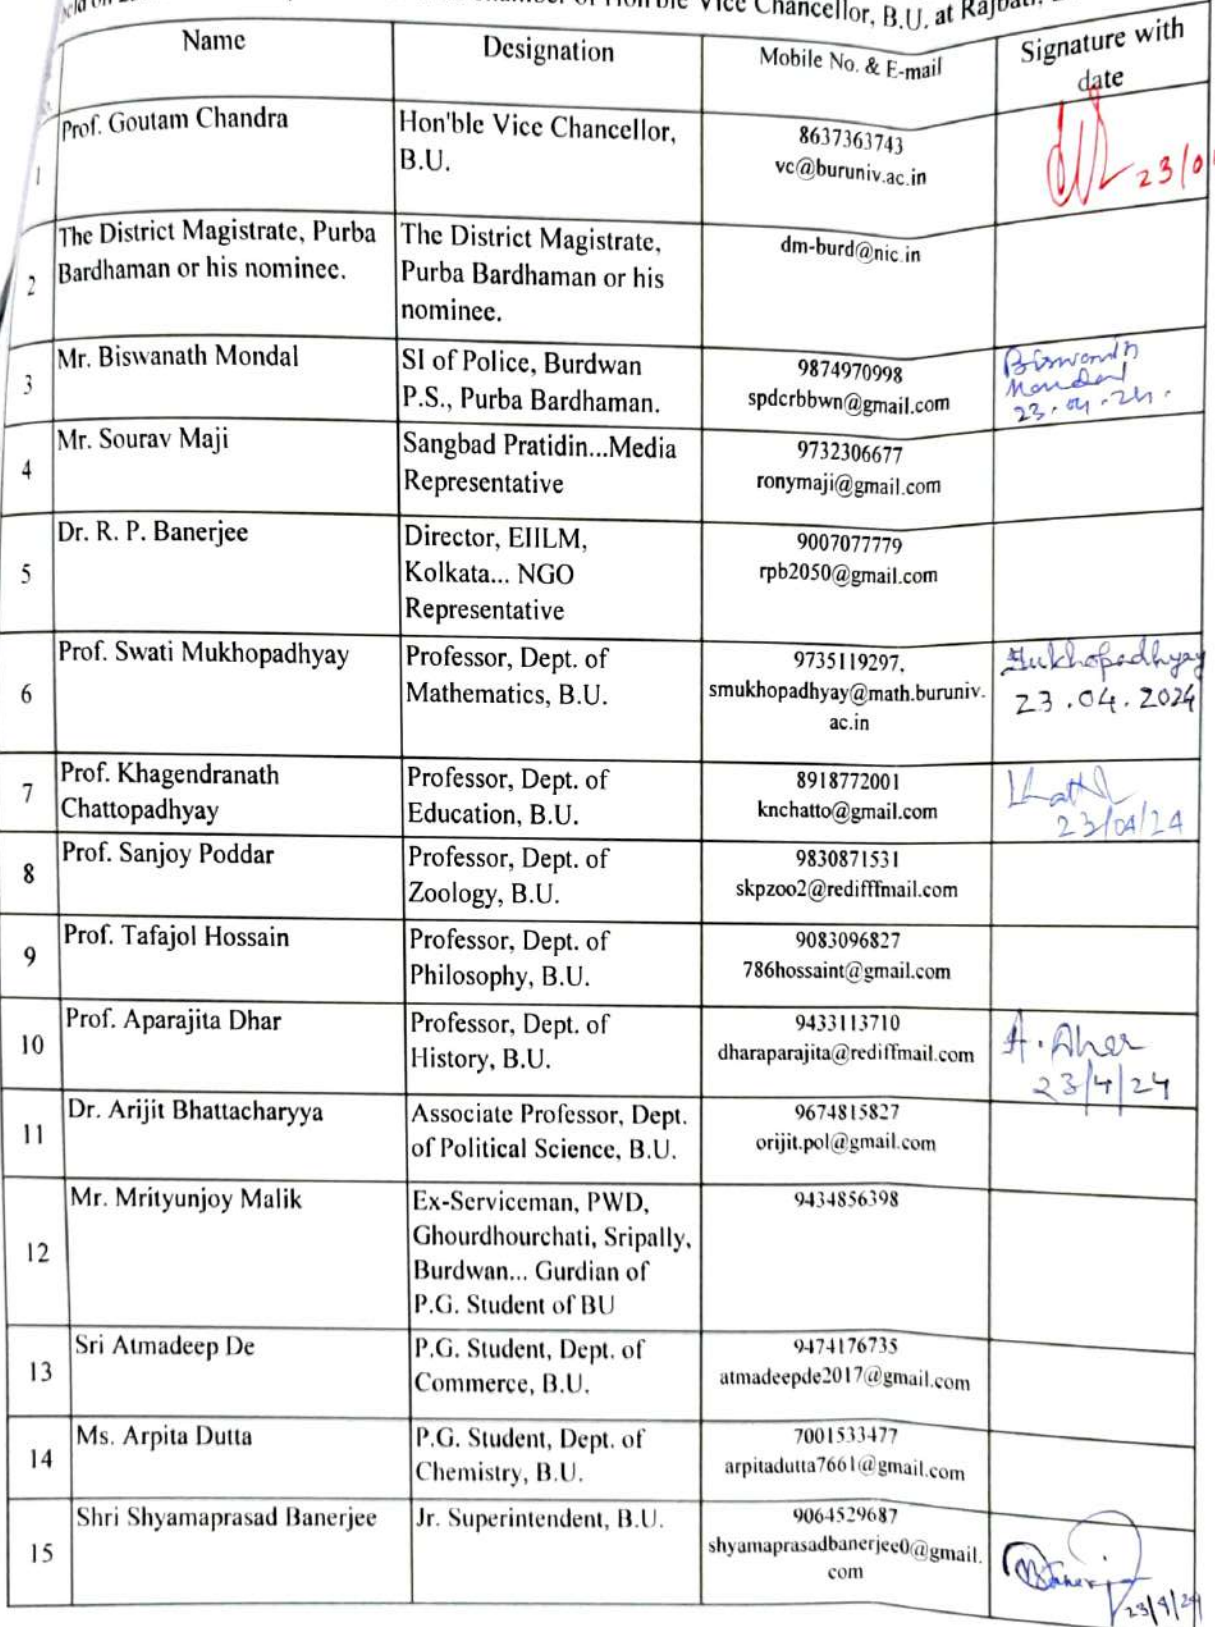 Chancellor, B.U. at
Name
Designation
Mobile No. & E-mail
Signature with
date
1
Prof. Goutam Chandra
Hon'ble Vice Chancellor,
B.U.
8637363743
vc@buruniv.ac.in
23/0
2
The District Magistrate, Purba
Bardhaman or his nominee.
The District Magistrate,
Purba Bardhaman or his
nominee.
dm-burd@nic.in
3
Mr. Biswanath Mondal
SI of Police, Burdwan
P.S., Purba Bardhaman.
9874970998
spdcrbbwn@gmail.com
Biswanath
Mondal
23.04.24.
4
Mr. Sourav Maji
Sangbad Pratidin...Media
Representative
9732306677
ronymaji@gmail.com
5
Dr. R. P. Banerjee
Director, EIILM,
Kolkata... NGO
Representative
9007077779
rpb2050@gmail.com
6
Prof. Swati Mukhopadhyay
Professor, Dept. of
Mathematics, B.U.
9735119297,
smukhopadhyay@math.buruniv.
ac.in
Mukhopadhyay
23.04.2024
7
Prof. Khagendranath
Chattopadhyay
Professor, Dept. of
Education, B.U.
8918772001
knchatto@gmail.com
23/04/24
8
Prof. Sanjoy Poddar
Professor, Dept. of
Zoology, B.U.
9830871531
skpzoo2@redifffmail.com
9
Prof. Tafajol Hossain
Professor, Dept. of
Philosophy, B.U.
9083096827
786hossaint@gmail.com
10
Prof. Aparajita Dhar
Professor, Dept. of
History, B.U.
9433113710
dharaparajita@rediffmail.com
A. Dhar
23/4/24
11
Dr. Arijit Bhattacharyya
Associate Professor, Dept.
of Political Science, B.U.
9674815827
orijit.pol@gmail.com
12
Mr. Mrityunjoy Malik
Ex-Serviceman, PWD,
Ghourdhourchati, Sripally,
Burdwan... Gurdian of
P.G. Student of BU
9434856398
13
Sri Atmadeep De
P.G. Student, Dept. of
Commerce, B.U.
9474176735
atmadeepde2017@gmail.com
14
Ms. Arpita Dutta
P.G. Student, Dept. of
Chemistry, B.U.
7001533477
arpitadutta7661@gmail.com
15
Shri Shyamaprasad Banerjee
Jr. Superintendent, B.U.
9064529687
shyamaprasadbanerjee0@gmail.
com
Banerjee
23/4/24